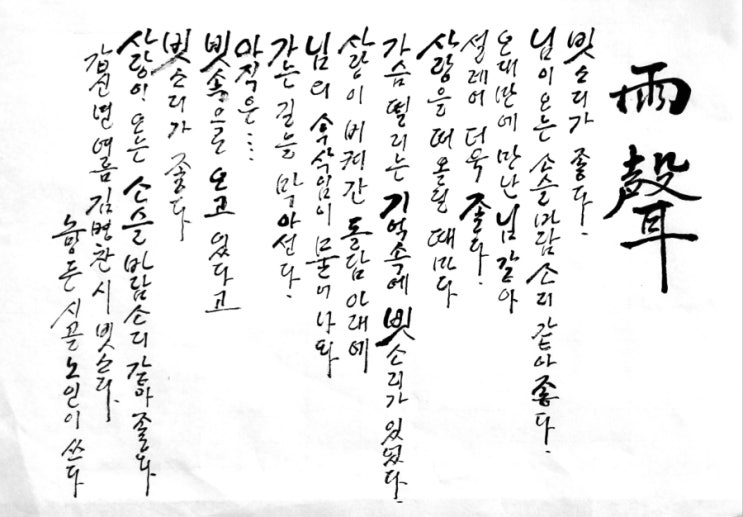 雨聲
빗소리가 좋다.
님이 오는 소슬바람 소리 같아 좋다.
오래만에 만난 님 같아
설레어 더욱 좋다.
사랑을 떠올릴 때마다
가슴 떨리는 기억속에 빗소리가 있었다.
사랑이 비켜간 돌담 아래에
님의 속삭임이 묻어나와
가는 길을 막아선다.
아직은....
빗속으로 오고 있다고
빗소리가 좋다
사랑이 오는 소슬바람소리 같아 좋다
갑신년 여름 김병찬 시 빗소리.
눈먼 시골노인이 쓰다